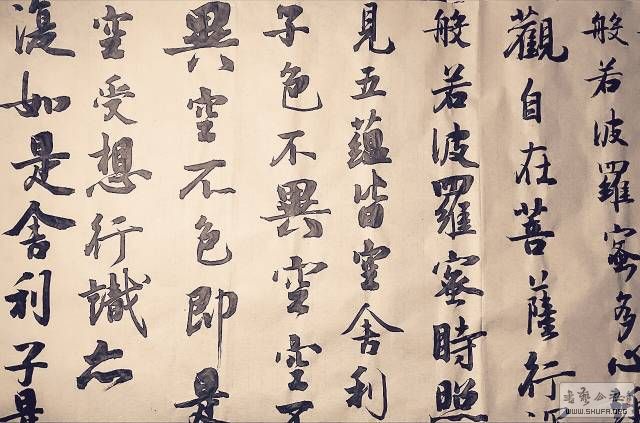 般若波羅蜜多心
觀自在菩薩行
般若波羅蜜時照
見五蘊皆空舍利
子色不異空空不
異空不色即是
空受想行識亦
復如是舍利子是
WWW.SHUFA.ORG